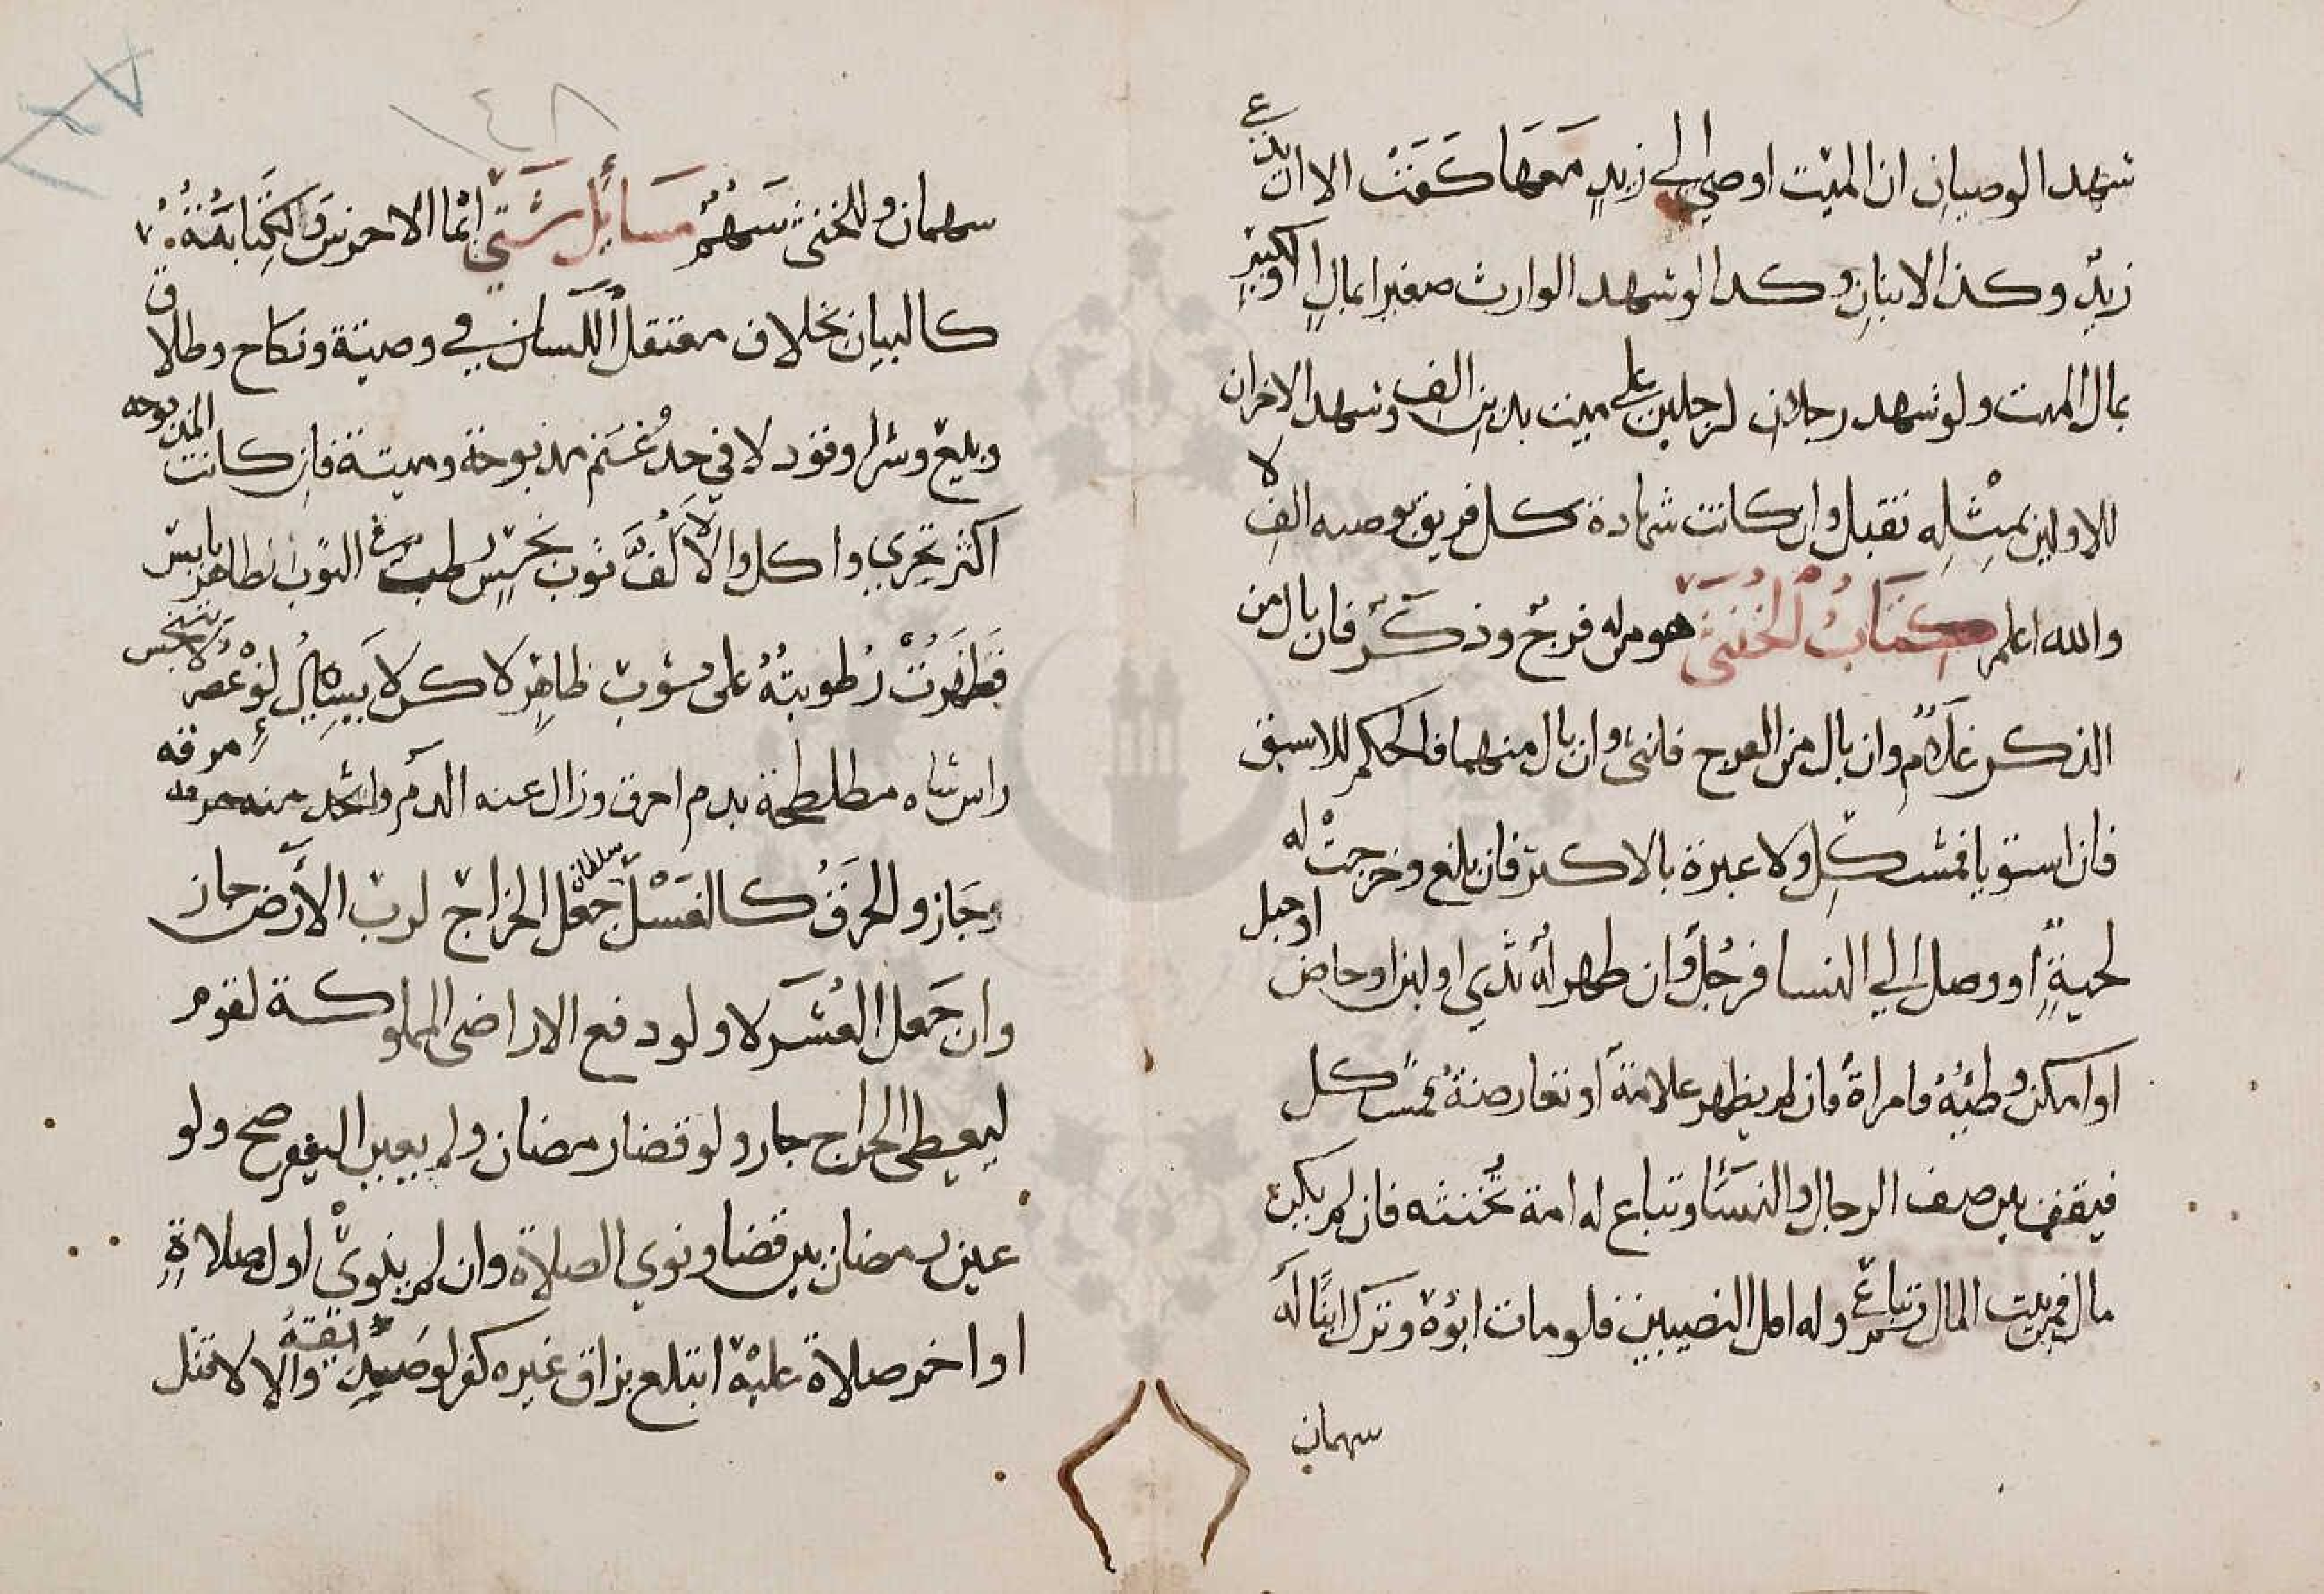 شهد الوصيان ان الميت اوصي الي زيد معهما لغت الا ان يدع
زيد وكذا الابنان وكدا لو شهد الوارث صغير بمال او لكبير
بمال الميت ولو شهد رجلان لرجلين علي ميت بدين الف وشهد الاخران
للاولين بمثله تقبل وان كانت شهادة كل فريق بوصيه الف لا
والله اعلم كتاب الخنثى هو من له فرج وذكر فان بال من
الذكر غلام وان بال من الفرج فانثى وان بال منهما فالحكم للاسبق
فان استويا فمشكل ولا عبرة بالاكثر فان بلغ وخرجت له
لحية او وصل الي النسا فرجل وان ظهر له ثدي او لبن او حاض او حبل
او امكن وطئه فامراة فان لم يظهر علامة او تعارضت فمشكل
فيقف بين صف الرجال والنسا وتباع له امة تختنه فان لم يكن
مال فمن بيت المال ثم تباع وله اقل النصيبين فلو مات ابوه وترك ابنا له
سهمان
١٤٨
سهمان وللخنثى سهم مسائل شتي ايما الاخرس وكتابته
كالبيان بخلاف معتقل اللسان في وصية ونكاح وطلاق
وبيع وشرا وقود لا في حد غنم مذبوحة وميتة فان كانت المذبوحه
اكثر تحري واكل والا لا لف ثوب نجس رطب في ثوب طاهر يابس
فظهرت رطوبته على ثوب طاهر لاكن لا يسيل لو عصر لا يتنجس
راس شاه مطلطخة بدم احرق وزال عنه الدم واتخذ منه مرقه
جاز والحرق كالغسل سلطان جعل الخراج لرب الارض جاز
وان جعل العشر لا ولو دفع الاراضى المملوكة لقوم
ليعطى الخراج جاز ولو قضا رمضان ولم يعين اليوم صح ولو
عين رمضانين قضا ونوي الصلاة وان لم ينوي اول صلاة
او اخر صلاة عليه ابتلع بزاق غيره كفر لو صديقه والا لا قتل